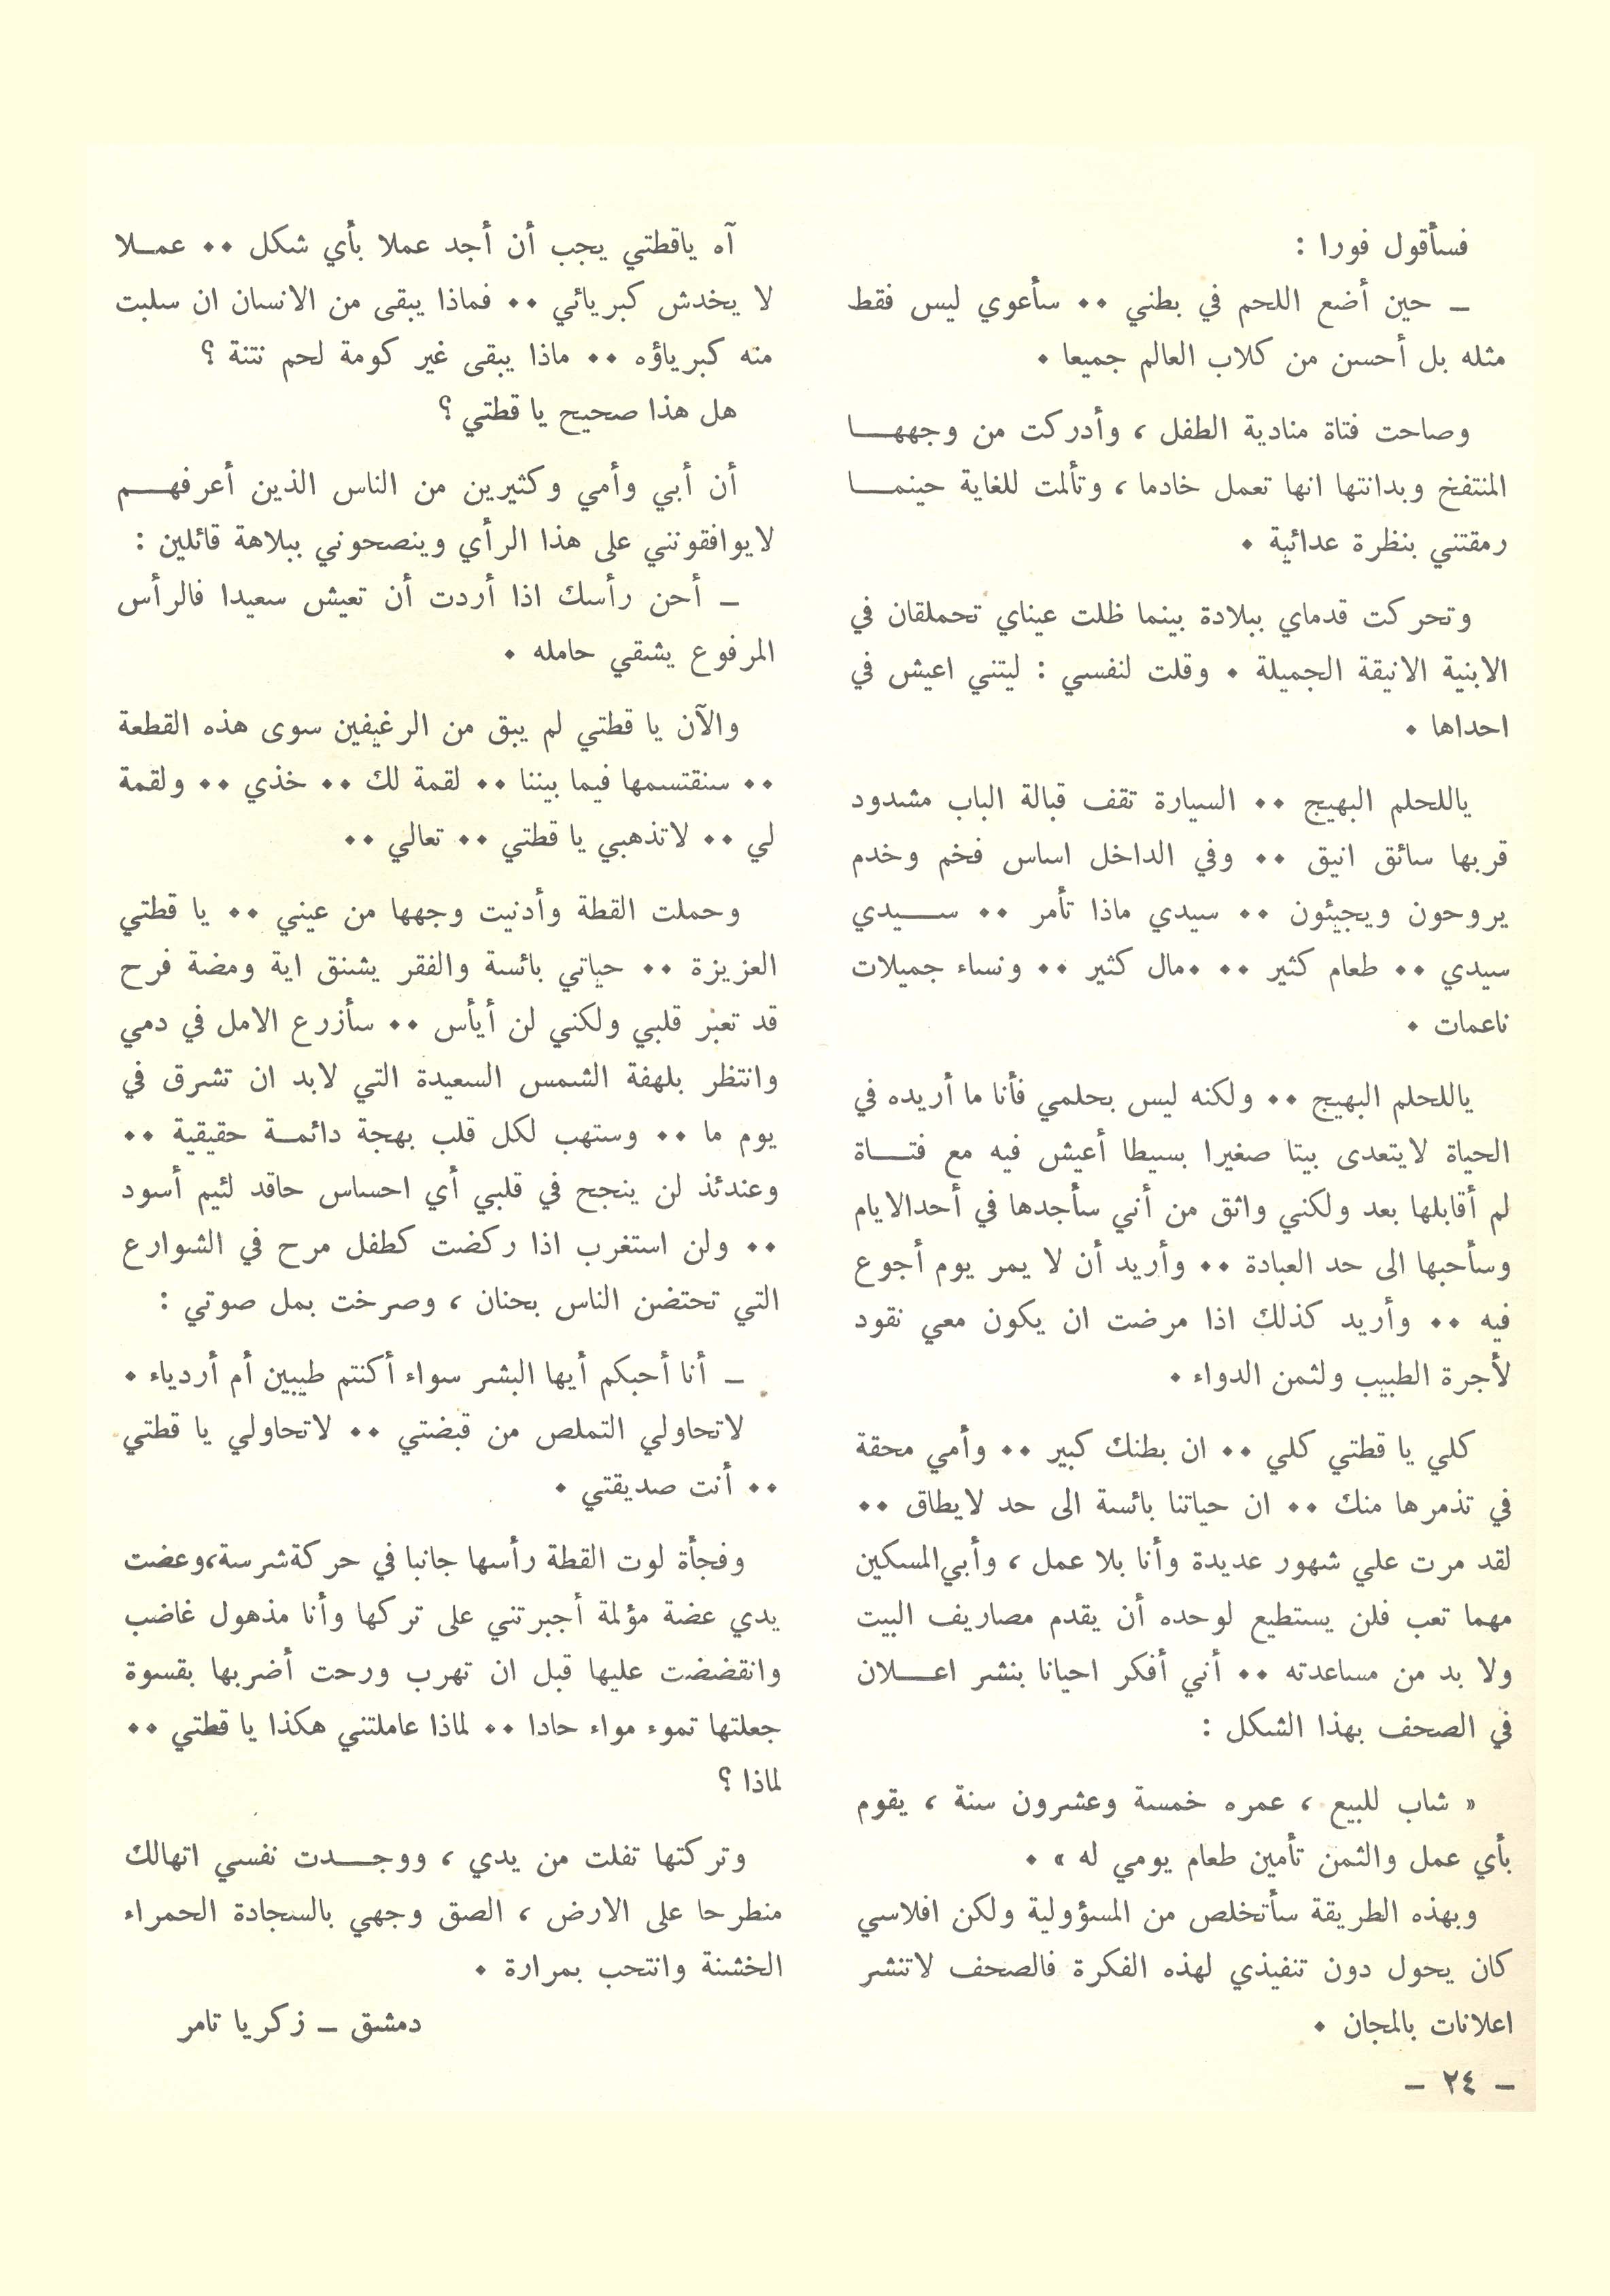 فسأقول فورا :
– حين أضع اللحم في بطني ٠٠ سأعوي ليس فقط
مثله بل أحسن من كلاب العالم جميعا ٠
وصاحت فتاة منادية الطفل ، وأدركت من وجهها
المنتفخ وبدانتها انها تعمل خادما ، وتألمت للغاية حينما
رمقتني بنظرة عدائية ٠
وتحركت قدماي ببلادة بينما ظلت عيناي تحملقان في
الابنية الانيقة الجميلة ٠ وقلت لنفسي : ليتني اعيش في
احداها ٠
ياللحلم البهيج ٠٠ السيارة تقف قبالة الباب مشدود
قربها سائق انيق ٠٠ وفي الداخل اساس فخم وخدم
يروحون ويجيئون ٠٠ سيدي ماذا تأمر ٠٠ سيدي
سيدي ٠٠ طعام كثير ٠٠ ٠مال كثير ٠٠ ونساء جميلات
ناعمات ٠
ياللحلم البهيج ٠٠ ولكنه ليس بحلمي فأنا ما أريده في
الحياة لايتعدى بيتا صغيرا بسيطا أعيش فيه مع فتاة
لم أقابلها بعد ولكني واثق من أني سأجدها في أحدالايام
وسأحبها الى حد العبادة ٠٠ وأريد أن لا يمر يوم أجوع
فيه ٠٠ وأريد كذلك اذا مرضت ان يكون معي نقود
لأجرة الطبيب ولثمن الدواء ٠
كلي يا قطتي كلي ٠٠ ان بطنك كبير ٠٠ وأمي محقة
في تذمرها منك ٠٠ ان حياتنا بائسة الى حد لايطاق ٠٠
لقد مرت علي شهور عديدة وأنا بلا عمل ، وأبي المسكين
مهما تعب فلن يستطيع لوحده أن يقدم مصاريف البيت
ولا بد من مساعدته ٠٠ أني أفكر احيانا بنشر اعلان
في الصحف بهذا الشكل :
« شاب للبيع ، عمره خمسة وعشرون سنة ، يقوم
بأي عمل والثمن تأمين طعام يومي له » ٠
وبهذه الطريقة سأتخلص من المسؤولية ولكن افلاسي
كان يحول دون تنفيذي لهذه الفكرة فالصحف لاتنشر
اعلانات بالمجان ٠
آه ياقطتي يجب أن أجد عملا بأي شكل ٠٠ عملا
لا يخدش كبريائي ٠٠ فماذا يبقى من الانسان ان سلبت
منه كبرياؤه ٠٠ ماذا يبقى غير كومة لحم نتنة ؟
هل هذا صحيح يا قطتي ؟
أن أبي وأمي وكثيرين من الناس الذين أعرفهم
لايوافقونني على هذا الرأي وينصحوني ببلاهة قائلين :
– أحن رأسك اذا أردت أن تعيش سعيدا فالرأس
المرفوع يشقي حامله ٠
والآن يا قطتي لم يبق من الرغيفين سوى هذه القطعة
٠٠ سنقتسمها فيما بيننا ٠٠ لقمة لك ٠٠ خذي ٠٠ ولقمة
لي ٠٠ لاتذهبي يا قطتي ٠٠ تعالي ٠٠
وحملت القطة وأدنيت وجهها من عيني ٠٠ يا قطتي
العزيزة ٠٠ حياتي بائسة والفقر يشنق اية ومضة فرح
قد تعبر قلبي ولكني لن أيأس ٠٠ سأزرع الامل في دمي
وانتظر بلهفة الشمس السعيدة التي لابد ان تشرق في
يوم ما ٠٠ وستهب لكل قلب بهجة دائمة حقيقية ٠٠
وعندئذ لن ينجح في قلبي أي احساس حاقد لئيم أسود
٠٠ ولن استغرب اذا ركضت كطفل مرح في الشوارع
التي تحتضن الناس بحنان ، وصرخت بمل صوتي :
– أنا أحبكم أيها البشر سواء أكنتم طيبين أم أردياء ٠
لاتحاولي التملص من قبضتي ٠٠ لاتحاولي يا قطتي
٠٠ أنت صديقتي ٠
وفجأة لوت القطة رأسها جانبا في حركة شرسة،وعضت
يدي عضة مؤلمة أجبرتني على تركها وأنا مذهول غاضب
وانقضضت عليها قبل ان تهرب ورحت أضربها بقسوة
جعلتها تموء مواء حادا ٠٠ لماذا عاملتني هكذا يا قطتي ٠٠
لماذا ؟
وتركتها تفلت من يدي ، ووجدت نفسي اتهالك
منطرحا على الارض ، الصق وجهي بالسجادة الحمراء
الخشنة وانتحب بمرارة ٠
دمشق – زكريا تامر
– ٢٤ –